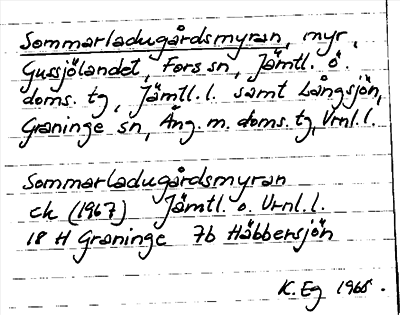 Sommarladugårdsmyran, myr,
Gussjölandet, Fors sn, Jämtl. ö.
doms. tg, Jämtl. l. samt Långsjön,
Graninge sn, Ång. m. doms. tg, Vrnl. l.
Sommarladugårdsmyran
ek (1967) Jämtl. o. Vrnl. l.
18 H Graninge 7b Häbbersjön
K. Eg 1968.